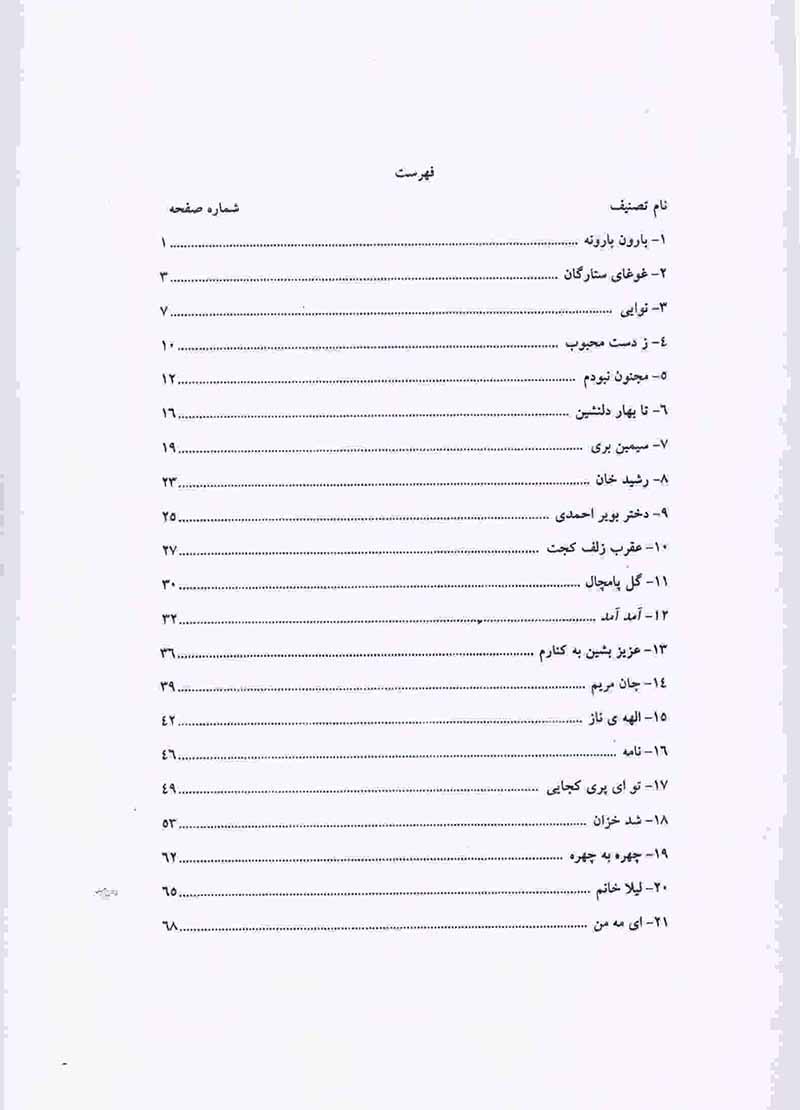 فهرست
نام تصنیف شماره صفحه
۱- بارون بارونه ........ ۱
۲- غوغای ستارگان ........ ۳
۳- نوایی ........ ۷
٤- ز دست محبوب ........ ۱۰
۵- مجنون نبودم ........ ۱۲
٦- تا بهار دلنشین ........ ۱٦
۷- سیمین بری ........ ۱۹
۸- رشید خان ........ ۲۳
۹- دختر بویر احمدی ........ ۲۵
۱۰- عقرب زلف کجت ........ ۲۷
۱۱- گل پامچال ........ ۳۰
۱۲- آمد آمد ........ ۳۲
۱۳- عزیز بشین به کنارم ........ ۳٦
۱٤- جان مریم ........ ۳۹
۱۵- الهه ی ناز ........ ٤۲
۱٦- نامه ........ ٤٦
۱۷- تو ای پری کجایی ........ ٤۹
۱۸- شد خزان ........ ۵۳
۱۹- چهره به چهره ........ ٦۲
۲۰- لیلا خانم ........ ٦۵
۲۱- ای مه من ........ ٦۸